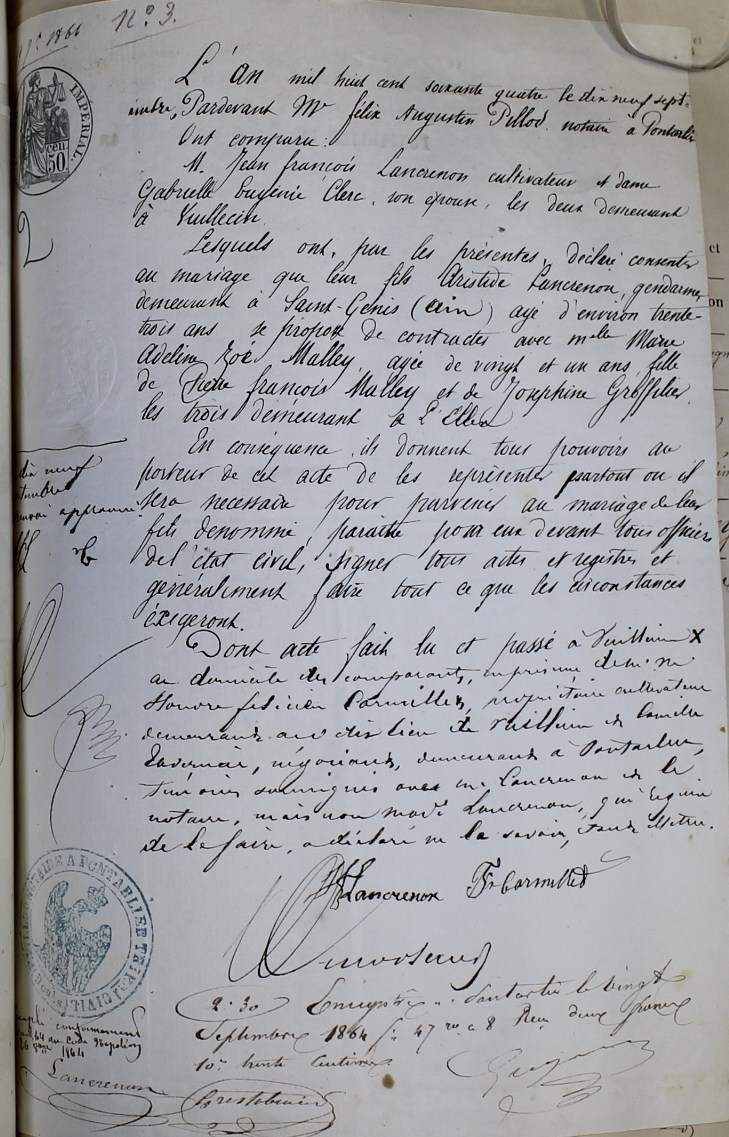 1864
N.º 3.
IMPERIAL.
50
L'an mil huit cent soixante quatre le dix neuf sept-
embre, Pardevant Me félix Augustin Pillod notaire à Pontarlier
Ont comparu :
M. Jean françois Lancrenon cultivateur et dame
Gabrielle Eugenie Clerc, son épouse, les deux demeurant
à Vuillecin
Lesquels ont, par les présentes, déclaré consenter
au mariage que leur fils Aristide Lancrenon, gendarme
demeurant à Saint-Genis (ain) agé d'environ trente-
trois ans se propose de contracter avec melle Marie
Adeline Zoé Malley, agée de vingt et un ans, fille
de Pierre françois Malley et de Josephine Groffilier
les trois demeurant à L'
En conséquence, ils donnent tous pouvoirs au
porteur de cet acte de les représenter partout ou il
sera necessaire pour parvenir au mariage de leur
fils dénommé, paraitre pour eux devant tous officiers
de l'état civil, signer tous actes et registres et
généralement faire tout ce que les circonstances
éxigeront.
Dont acte fait lu et passé à Vuillecin X
au domicile des comparants, en présence de
Honoré felicien propriétaire cultivateur
demeurant au dit lieu de Vuillecin et
négociant, demeurant à Pontarlier,
témoins soussignés avec Lancrenon et le
notaire, mais non made Lancrenon, qui requise
de le faire, a déclaré ne le savoir,
dix neuf
septembre
approuvé
Lancrenon
NOTAIRE A PONTARLIER
2.30 Enregistré à Pontarlier le vingt
Septembre 1864 fo 47 ro c 8 Reçu deux francs
10es trente centimes
conformement
au Code Napoléon
1864
Lancrenon